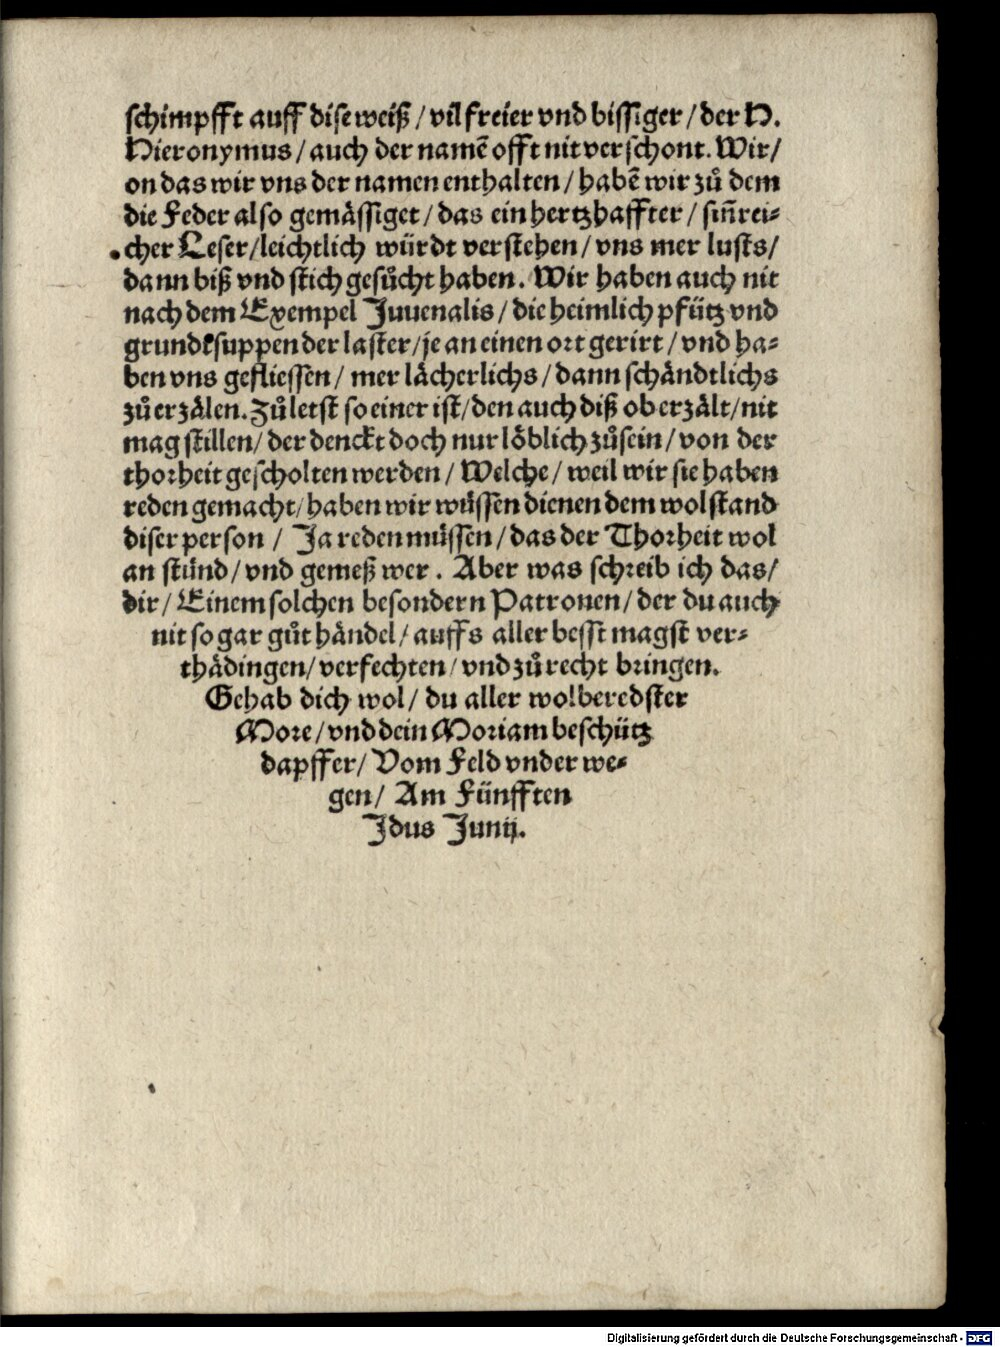 schimpfft auff dise weiß / vil freier vnd bissiger / der H.
Hieronymus / auch der namē offt nit verschont. Wir /
on das wir vns der namen enthalten / habē wir zů dem
die Feder also gemässiget / das ein hertzhaffter / sin̄rei-
cher Leser / leichtlich würdt verstehen / vns mer lusts /
dann biß vnd stich gesůcht haben. Wir haben auch nit
nach dem Exempel Juuenalis / die heimlich pfütz vnd
grundtsuppen der laster / je an einen ort gerirt / vnd ha-
ben vns gefliessen / mer lächerlichs / dann schändtlichs
zů erzälen. Zů letst so einer ist / den auch diß ob erzält / nit
mag stillen / der denckt doch nur löblich zů sein / von der
thorheit gescholten werden / Welche / weil wir sie haben
reden gemacht / haben wir müssen dienen dem wolstand
diser person / Ja reden müssen / das der Thorheit wol
an stünd / vnd gemeß wer. Aber was schreib ich das /
dir / Einem solchen besondern Patronen / der du auch
nit so gar gůt händel / auffs aller besst magst ver-
thädingen / verfechten / vnd zů recht bringen.
Gehab dich wol / du aller wolberedster
More / vnd dein Moriam beschütz
dapffer / Vom Feld vnder we-
gen / Am Fünfften
Idus Junij.
Digitalisierung gefördert durch die Deutsche Forschungsgemeinschaft - DFG